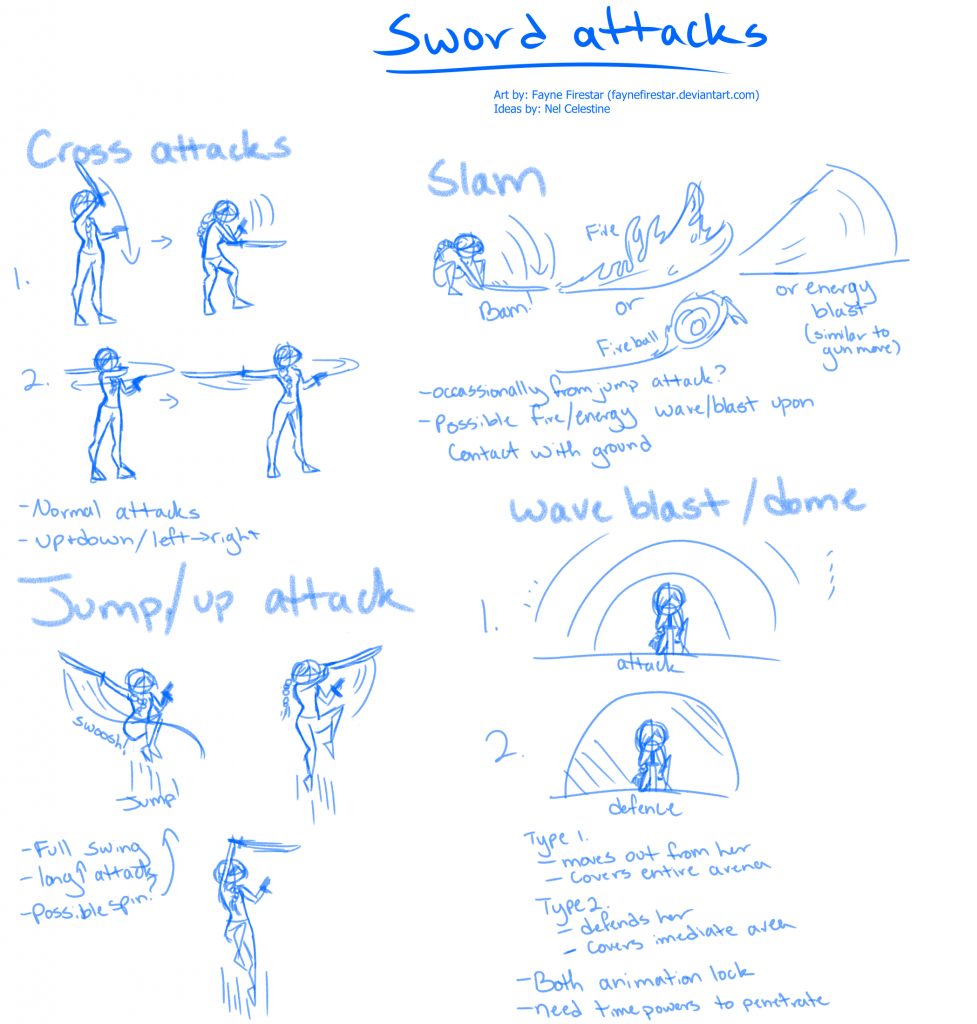 Sword attacks
Art by: Fayne Firestar (faynefirestar.deviantart.com)
Ideas by: Nel Celestine
Cross attacks
1.
2.
-Normal attacks
-up+down/left→right
Slam
Bam!
Fire
or
Fireball
or energy
blast
(similar to
gun move)
-occassionally from jump attack?
-Possible fire/energy wave/blast upon
contact with ground
Jump/up attack
swoosh!
Jump!
-Full swing
-long↑ attack
-Possible spin?
wave blast/dome
1.
attack
2.
defence
Type 1.
-moves out from her
-covers entire arena
Type 2.
-defends her
-covers imediate area
-Both animation lock
-need time powers to penetrate